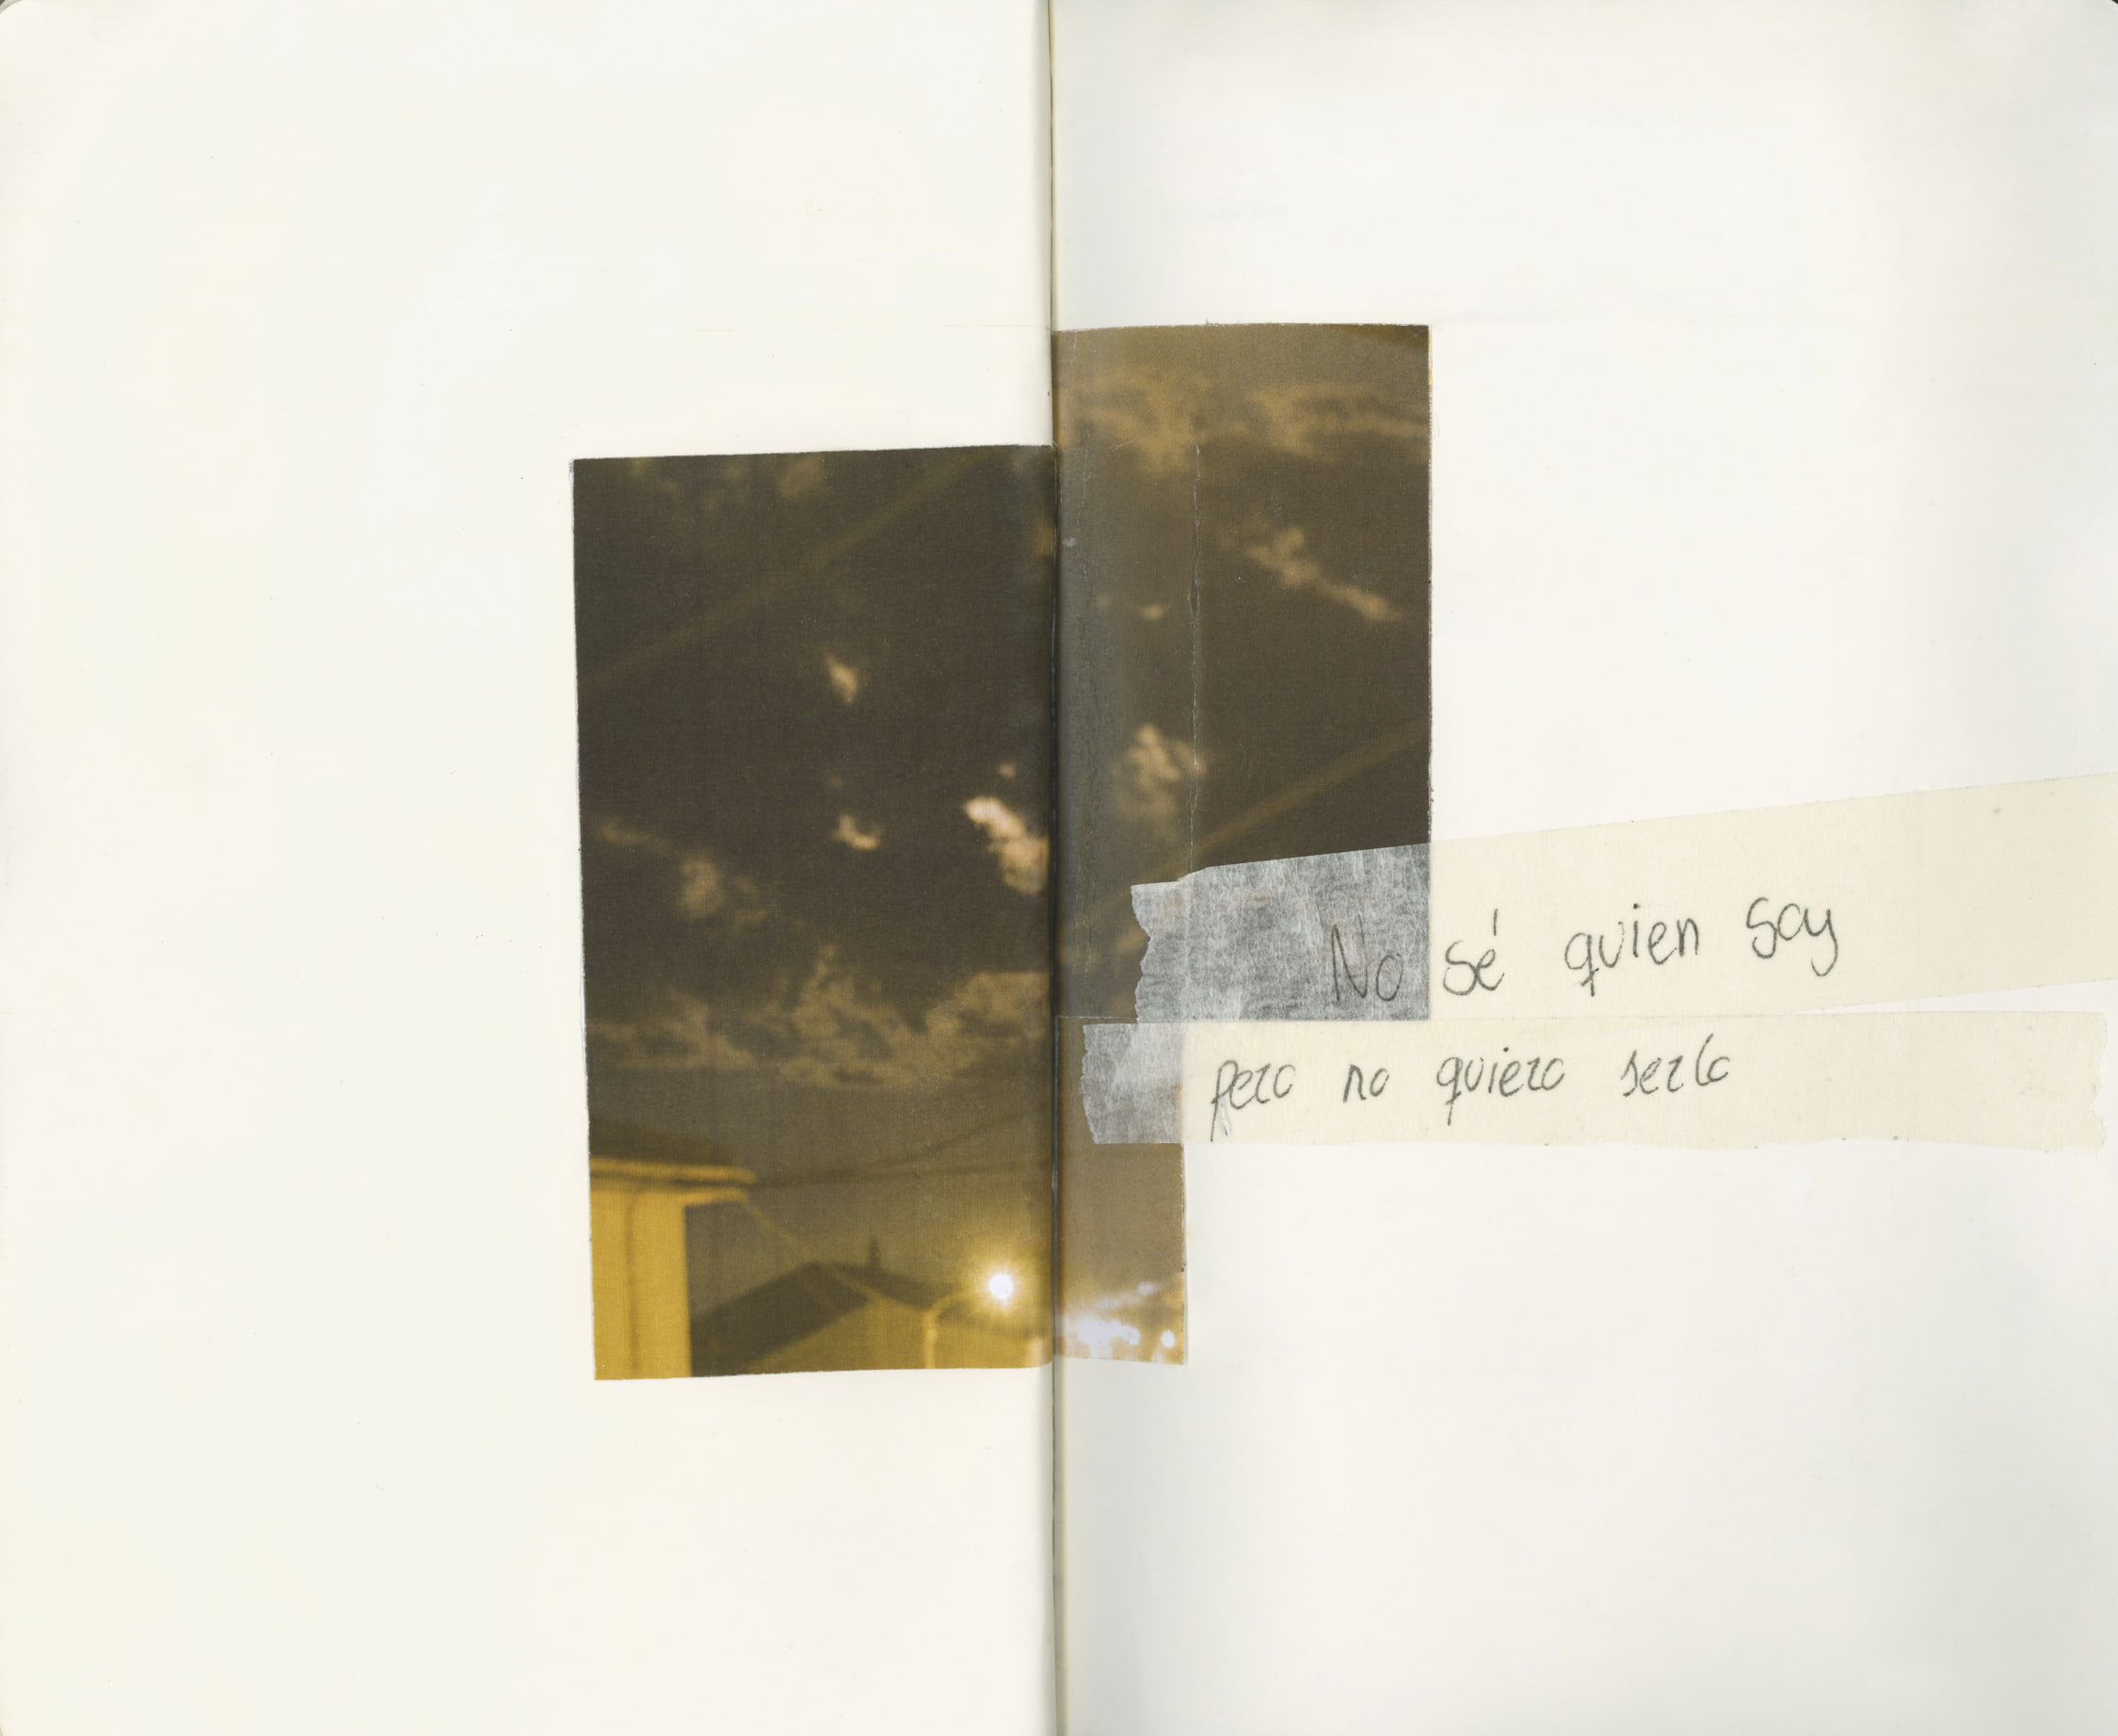 No sé quien soy
pero no quiero serlo